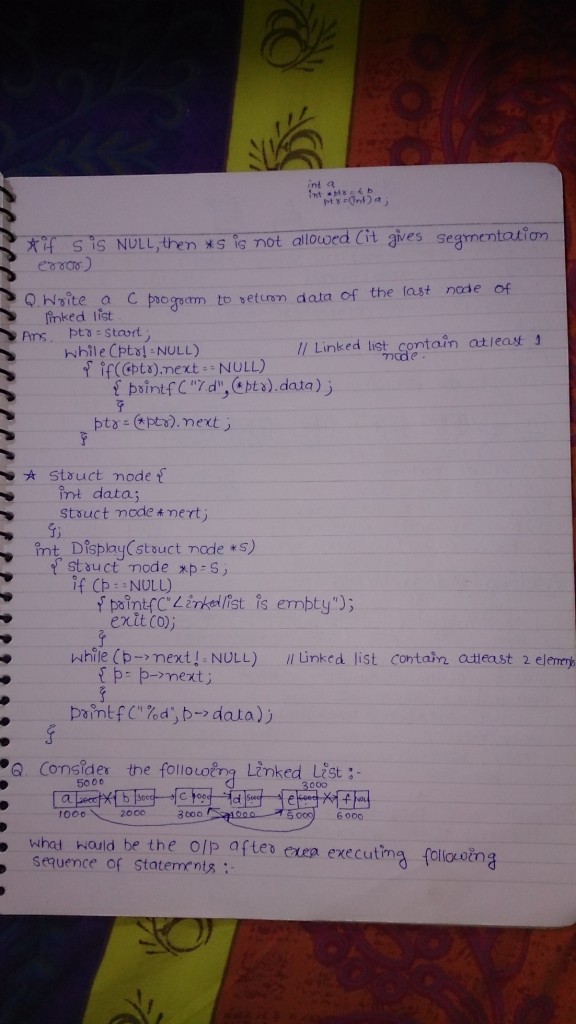 int a
int *ptr = & b
ptr = (int) a;
* if S is NULL, then *S is not allowed (it gives segmentation
error)
Q. Write a C program to return data of the last node of
linked list.
Ans. ptr = start;
while (ptr != NULL) // Linked list contain atleast 1
node.
{ if ((*ptr).next == NULL)
{ printf("%d", (*ptr).data);
}
ptr = (*ptr).next;
}
* struct node {
int data;
struct node * next;
};
int Display(struct node *S)
{ struct node *p = S;
if (p == NULL)
{ printf("Linked list is empty");
exit(0);
}
while (p->next != NULL) // Linked list contain atleast 2 elements
{ p = p->next;
}
printf("%d", p->data);
}
Q. Consider the following Linked List :-
5000 3000
a 2000 b 3000 c d 5000 e 6000 f
1000 2000 3000 4000 5000 6000
what would be the O/P after executing following
sequence of statements :-